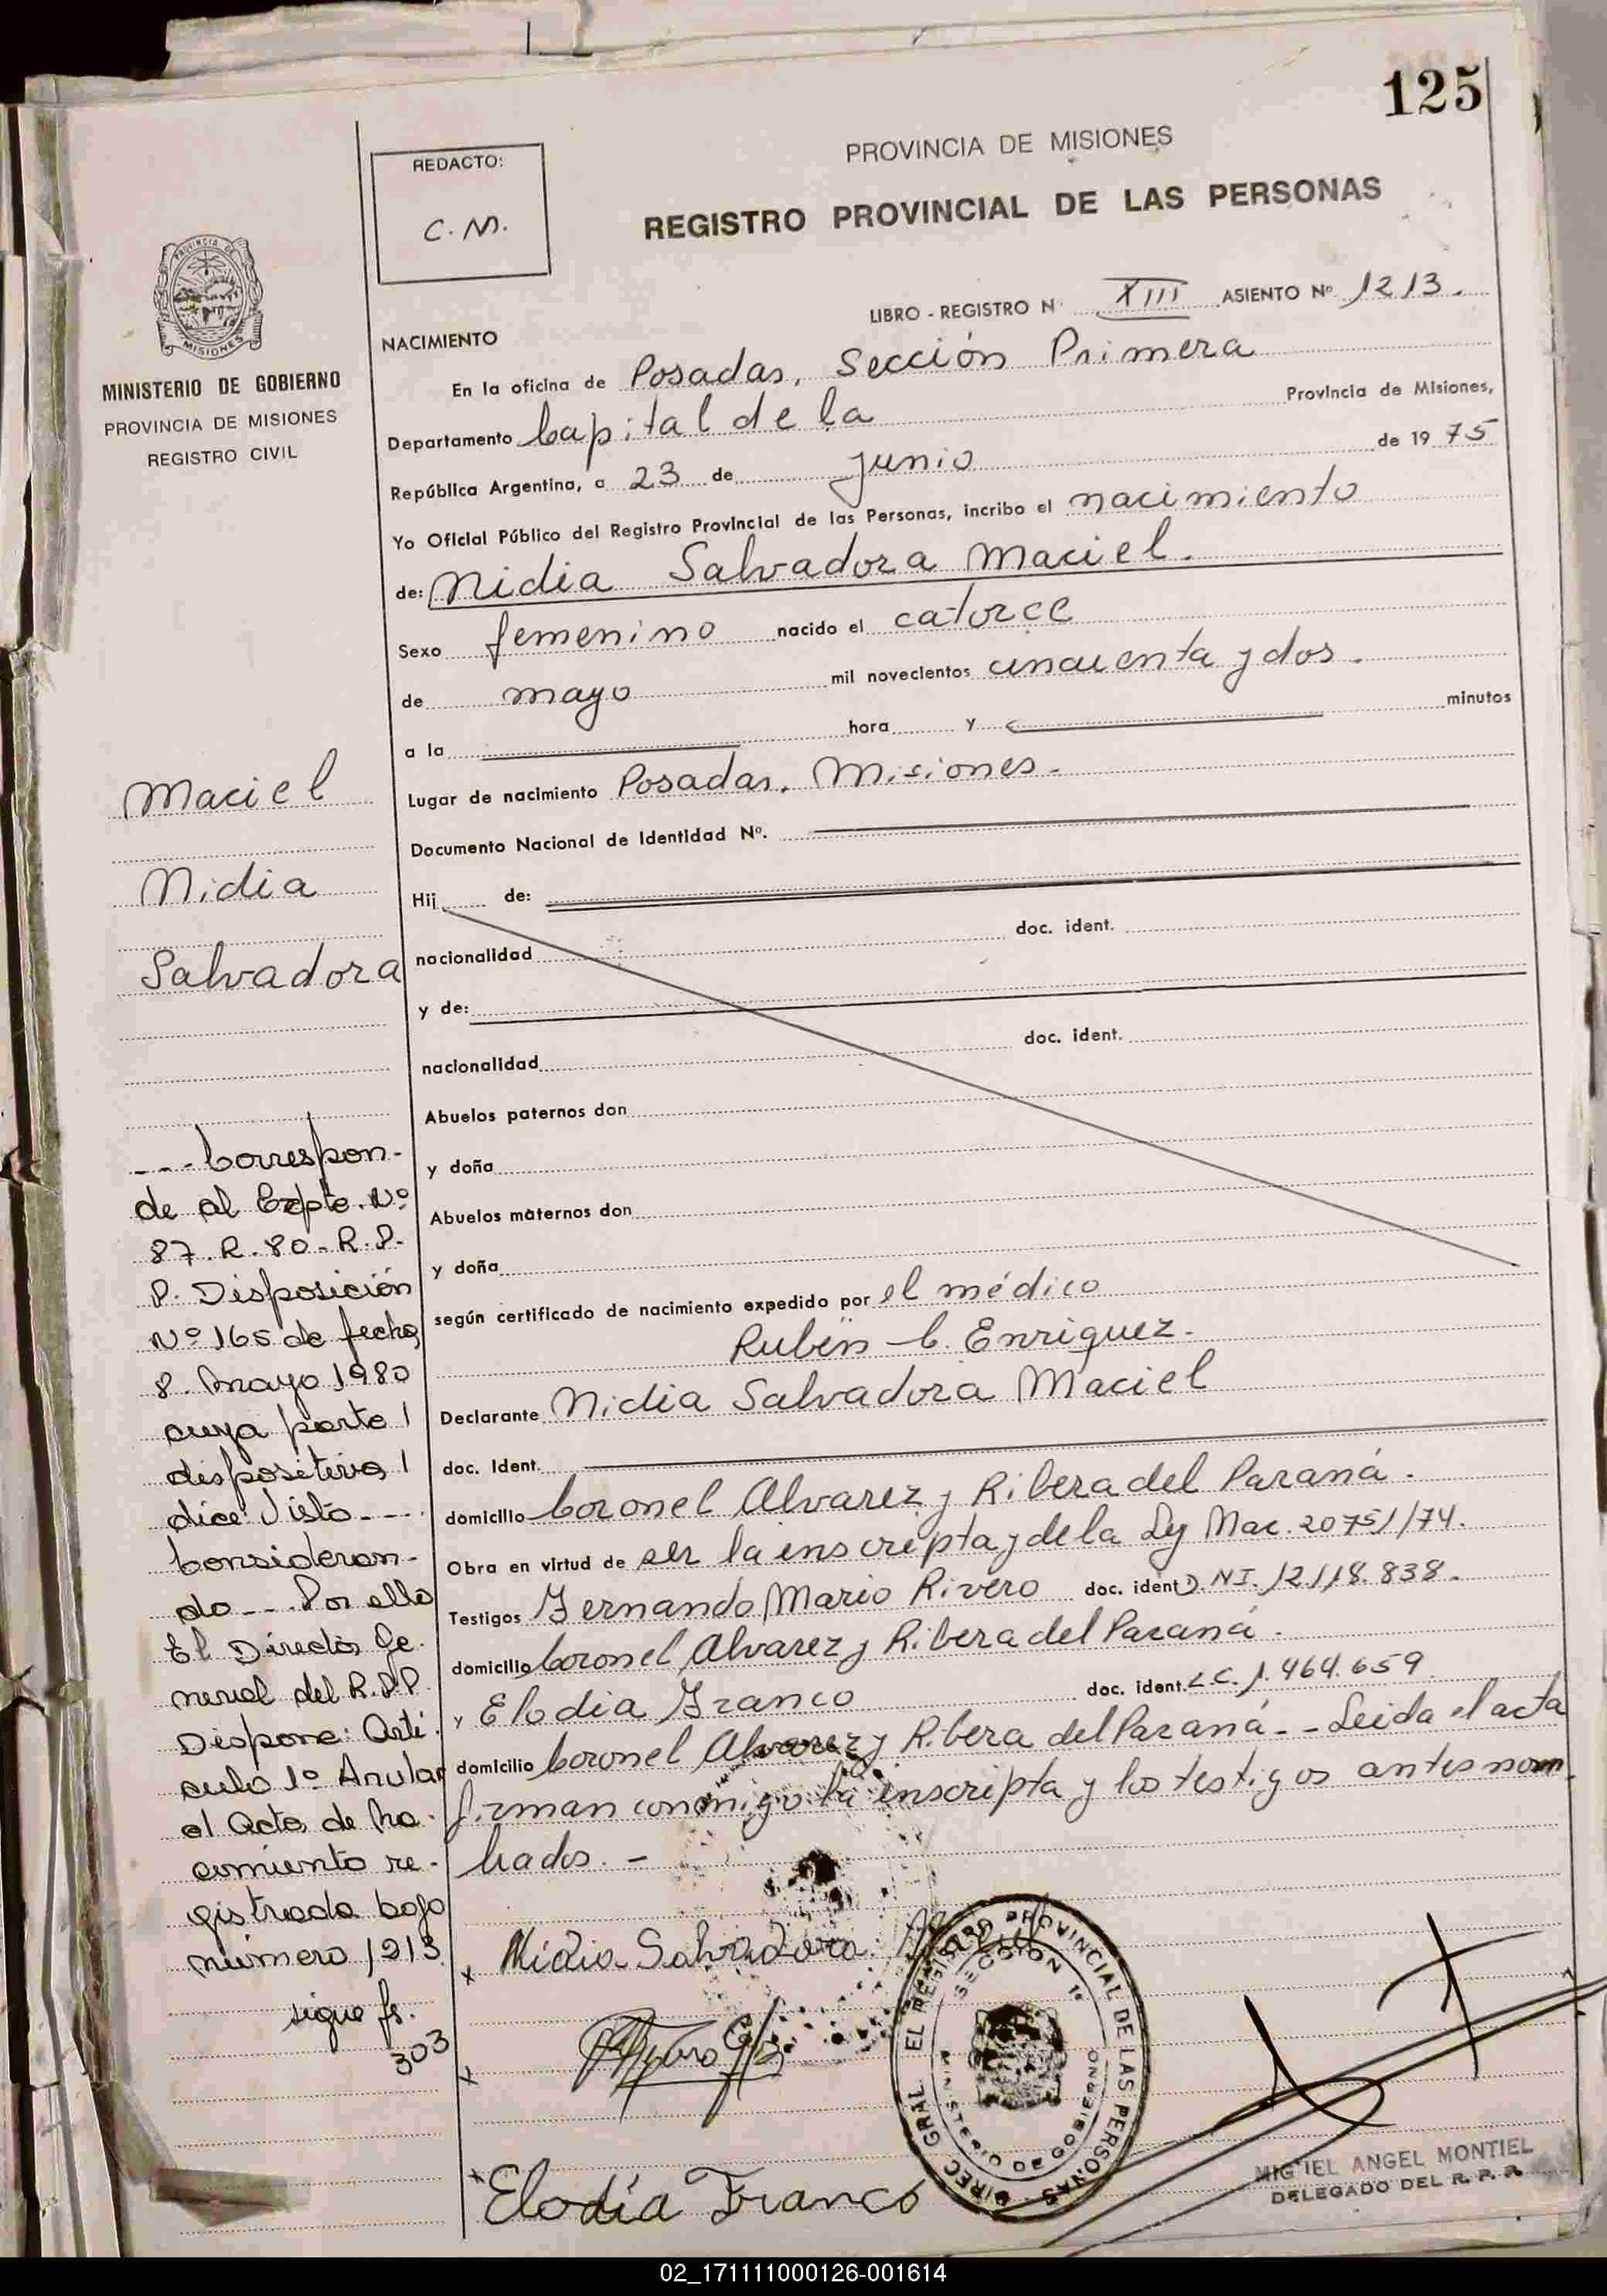 125
REDACTO:
C. M.
PROVINCIA DE MISIONES
REGISTRO PROVINCIAL DE LAS PERSONAS
LIBRO - REGISTRO N° XIII ASIENTO Nº 1213.
PROVINCIA DE MISIONES
MINISTERIO DE GOBIERNO
PROVINCIA DE MISIONES
REGISTRO CIVIL
NACIMIENTO
En la oficina de Posadas, Sección Primera
Departamento Capital de la Provincia de Misiones,
República Argentina, a 23 de junio de 1975
Yo Oficial Público del Registro Provincial de las Personas, incribo el nacimiento
de: Nidia Salvadora Maciel.
Sexo femenino nacido el catorce
de mayo mil novecientos cincuenta y dos.
a la hora y minutos
Lugar de nacimiento Posadas, Misiones.
Documento Nacional de Identidad Nº.
Hij de:
nacionalidad doc. ident.
y de:
nacionalidad doc. ident.
Abuelos paternos don
y doña
Abuelos maternos don
y doña
según certificado de nacimiento expedido por el médico
Rubén C. Enriquez.
Declarante Nidia Salvadora Maciel
doc. Ident.
domicilio Coronel Alvarez y Ribera del Paraná.
Obra en virtud de ser la inscripta y de la Ley Nac. 20751/74.
Testigos Fernando Mario Rivero doc. ident D.N.I. 12118.838.
domicilio Coronel Alvarez y Ribera del Paraná.
y Elodia Franco doc. ident. L.C. 1.464.659
domicilio Coronel Alvarez y Ribera del Paraná - - Leida el acta
firman conmigo la inscripta y los testigos antes nom
brados. -
Maciel
Nidia
Salvadora
--- Correspon-
de al Expte. Nº
87.R.80-R.P.
P. Disposición
Nº 165 de fecha
8. Mayo 1980
cuya parte
dispositiva
dice: Visto ---
Consideran-
do --- Por ello
El Director Ge-
neral del R.P.P.
Dispone: Artí-
culo 1º Anular
el Acta de Na-
cimiento re-
gistrada bajo
número 1213.
sigue fs.
303
x Nidia Salvadora
x
x Elodia Franco
DIREC. GRAL. EL REGISTRO PROVINCIAL DE LAS PERSONAS
SECCION 1ª
MINISTERIO DE GOBIERNO
MIGUEL ANGEL MONTIEL
DELEGADO DEL R. P. P.
02_171111000126-001614